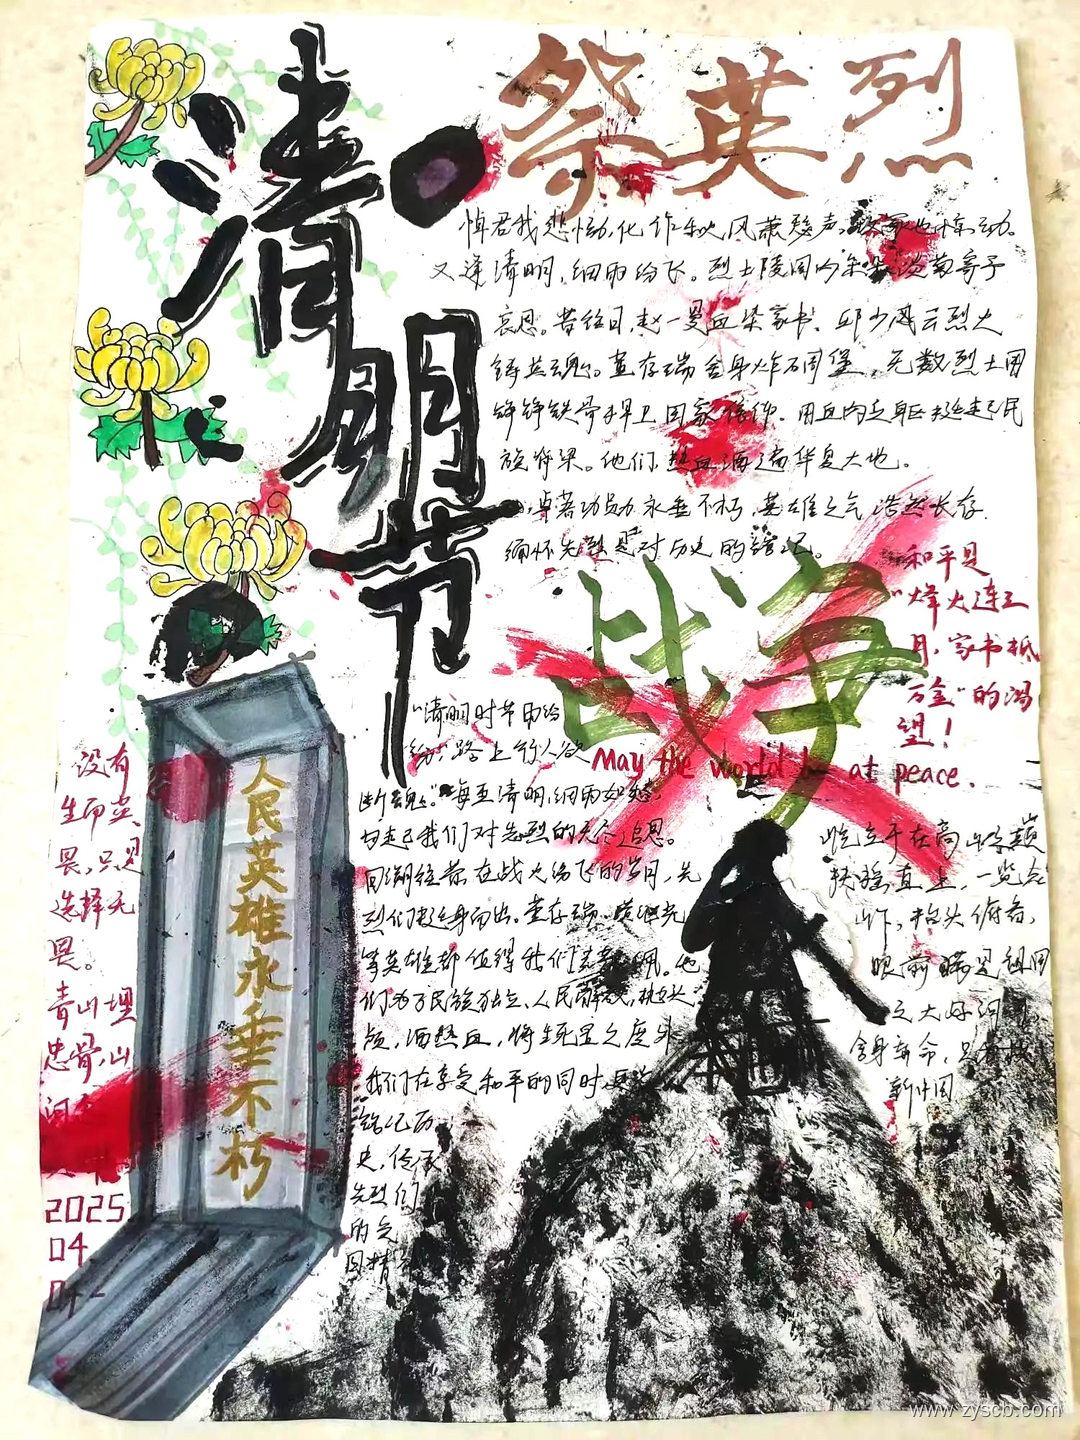 清明节
祭英烈
悼君我悲恸,化作秋风萧瑟声,
又逢清明,细雨纷飞。烈士陵园内
寄予
哀思。昔往日,赵一曼血染家书、邱少云烈火
铸英魂。董存瑞舍身炸碉堡,无数烈士用
铮铮铁骨捍卫国家
用血肉之躯挺起民
族脊梁。他们热血洒遍华夏大地。
卓著功勋永垂不朽,英雄之气浩然长存.
缅怀先烈是对历史的铭记。
战争
和平是
"烽火连三
月,家书抵
万金"的渴
望!
May the world be at peace.
"清明时节雨纷
纷,路上行人欲
断魂。"每至清明,细雨如愁,
勾起我们对先烈的无尽追思。
回溯往昔在战火纷飞的岁月,先
烈们挺身而出。董存瑞、黄继光
等英雄都值得我们
他
们为了民族独立、人民解放,抛头
颅,洒热血,将生死置之度外
我们在享受和平的同时
铭记历
史,传承
先烈们
的
屹立于在高山之巅
扶摇直上,一览众
山
抬头俯看,
眼前
是祖国
之大好河
舍身
命,
新中国
没有
生而英
畏,只是
选择无
畏。
青山埋
忠骨,山
河
2025.
04
人民英雄永垂不朽
www.zyscb.com